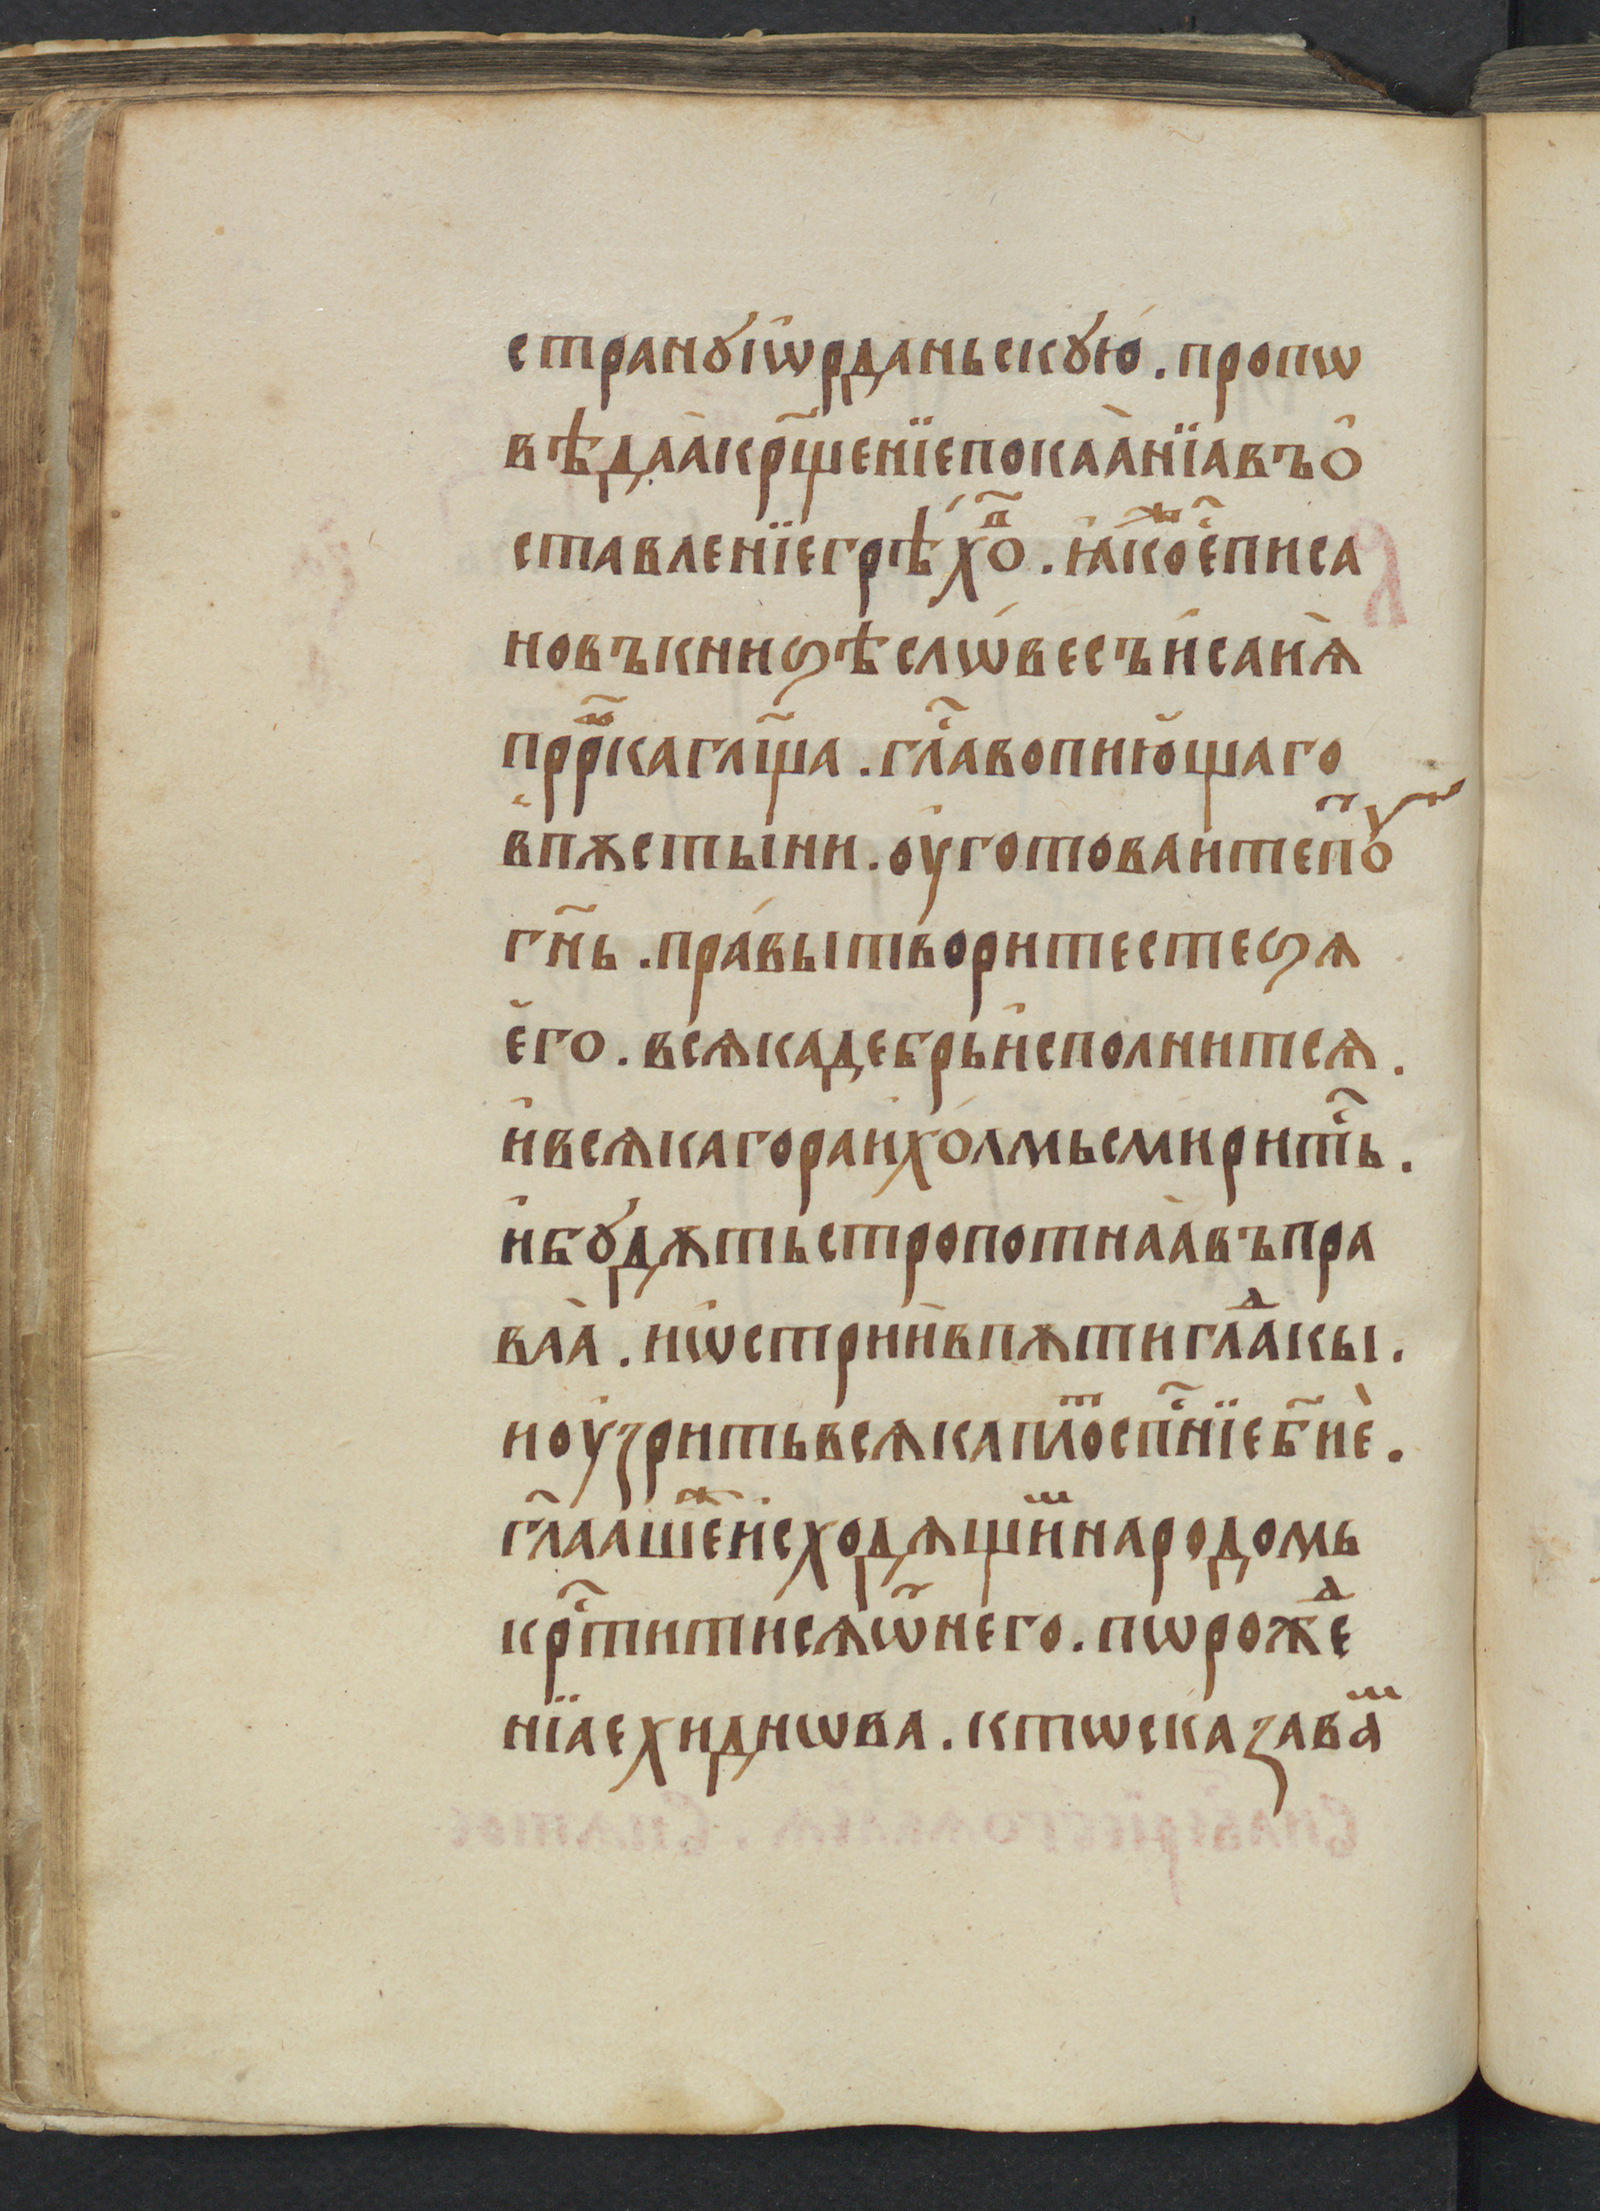 странꙋ і҆ѡрданьскꙋю . пропѡ
вѣдаа̀ крⷭ҇щенїе покаа̀нїа въ о҆
ставленїе грѣхо҃ⷡ . ꙗ҆коⷤ є҆҃ писа
но въ книѕѣ слѡвесъ и҆саиꙗ
прⷪ҇рка гл҃ща . глⷭ҇а вопиющаго
в҆ пѫстыни . оу҆готоваите по҃ⷮⷮ
гн҃ь . правы творите стеѕѧ
е҆го . всѧка дебрь и҆сполнитсѧ .
и҆ всѧка гора и҆ холмь смиритⷭ҇ь .
и҆ бꙋдѫть стропотнаа̀ въ пра
ваа̀ . и ѡ҆стриѝ в пѫти глаⷣкы .
и оу҆зрить всѧка плоⷮ сп҃нїе б҃иѐ .
гл҃ааше́ⷤ и҆сходѧщиⷨ народомь
крⷭ҇титисѧ ѿ него . пѡрожеⷣ
нїа ехиднѡва . ктѡ сказа ваⷨ